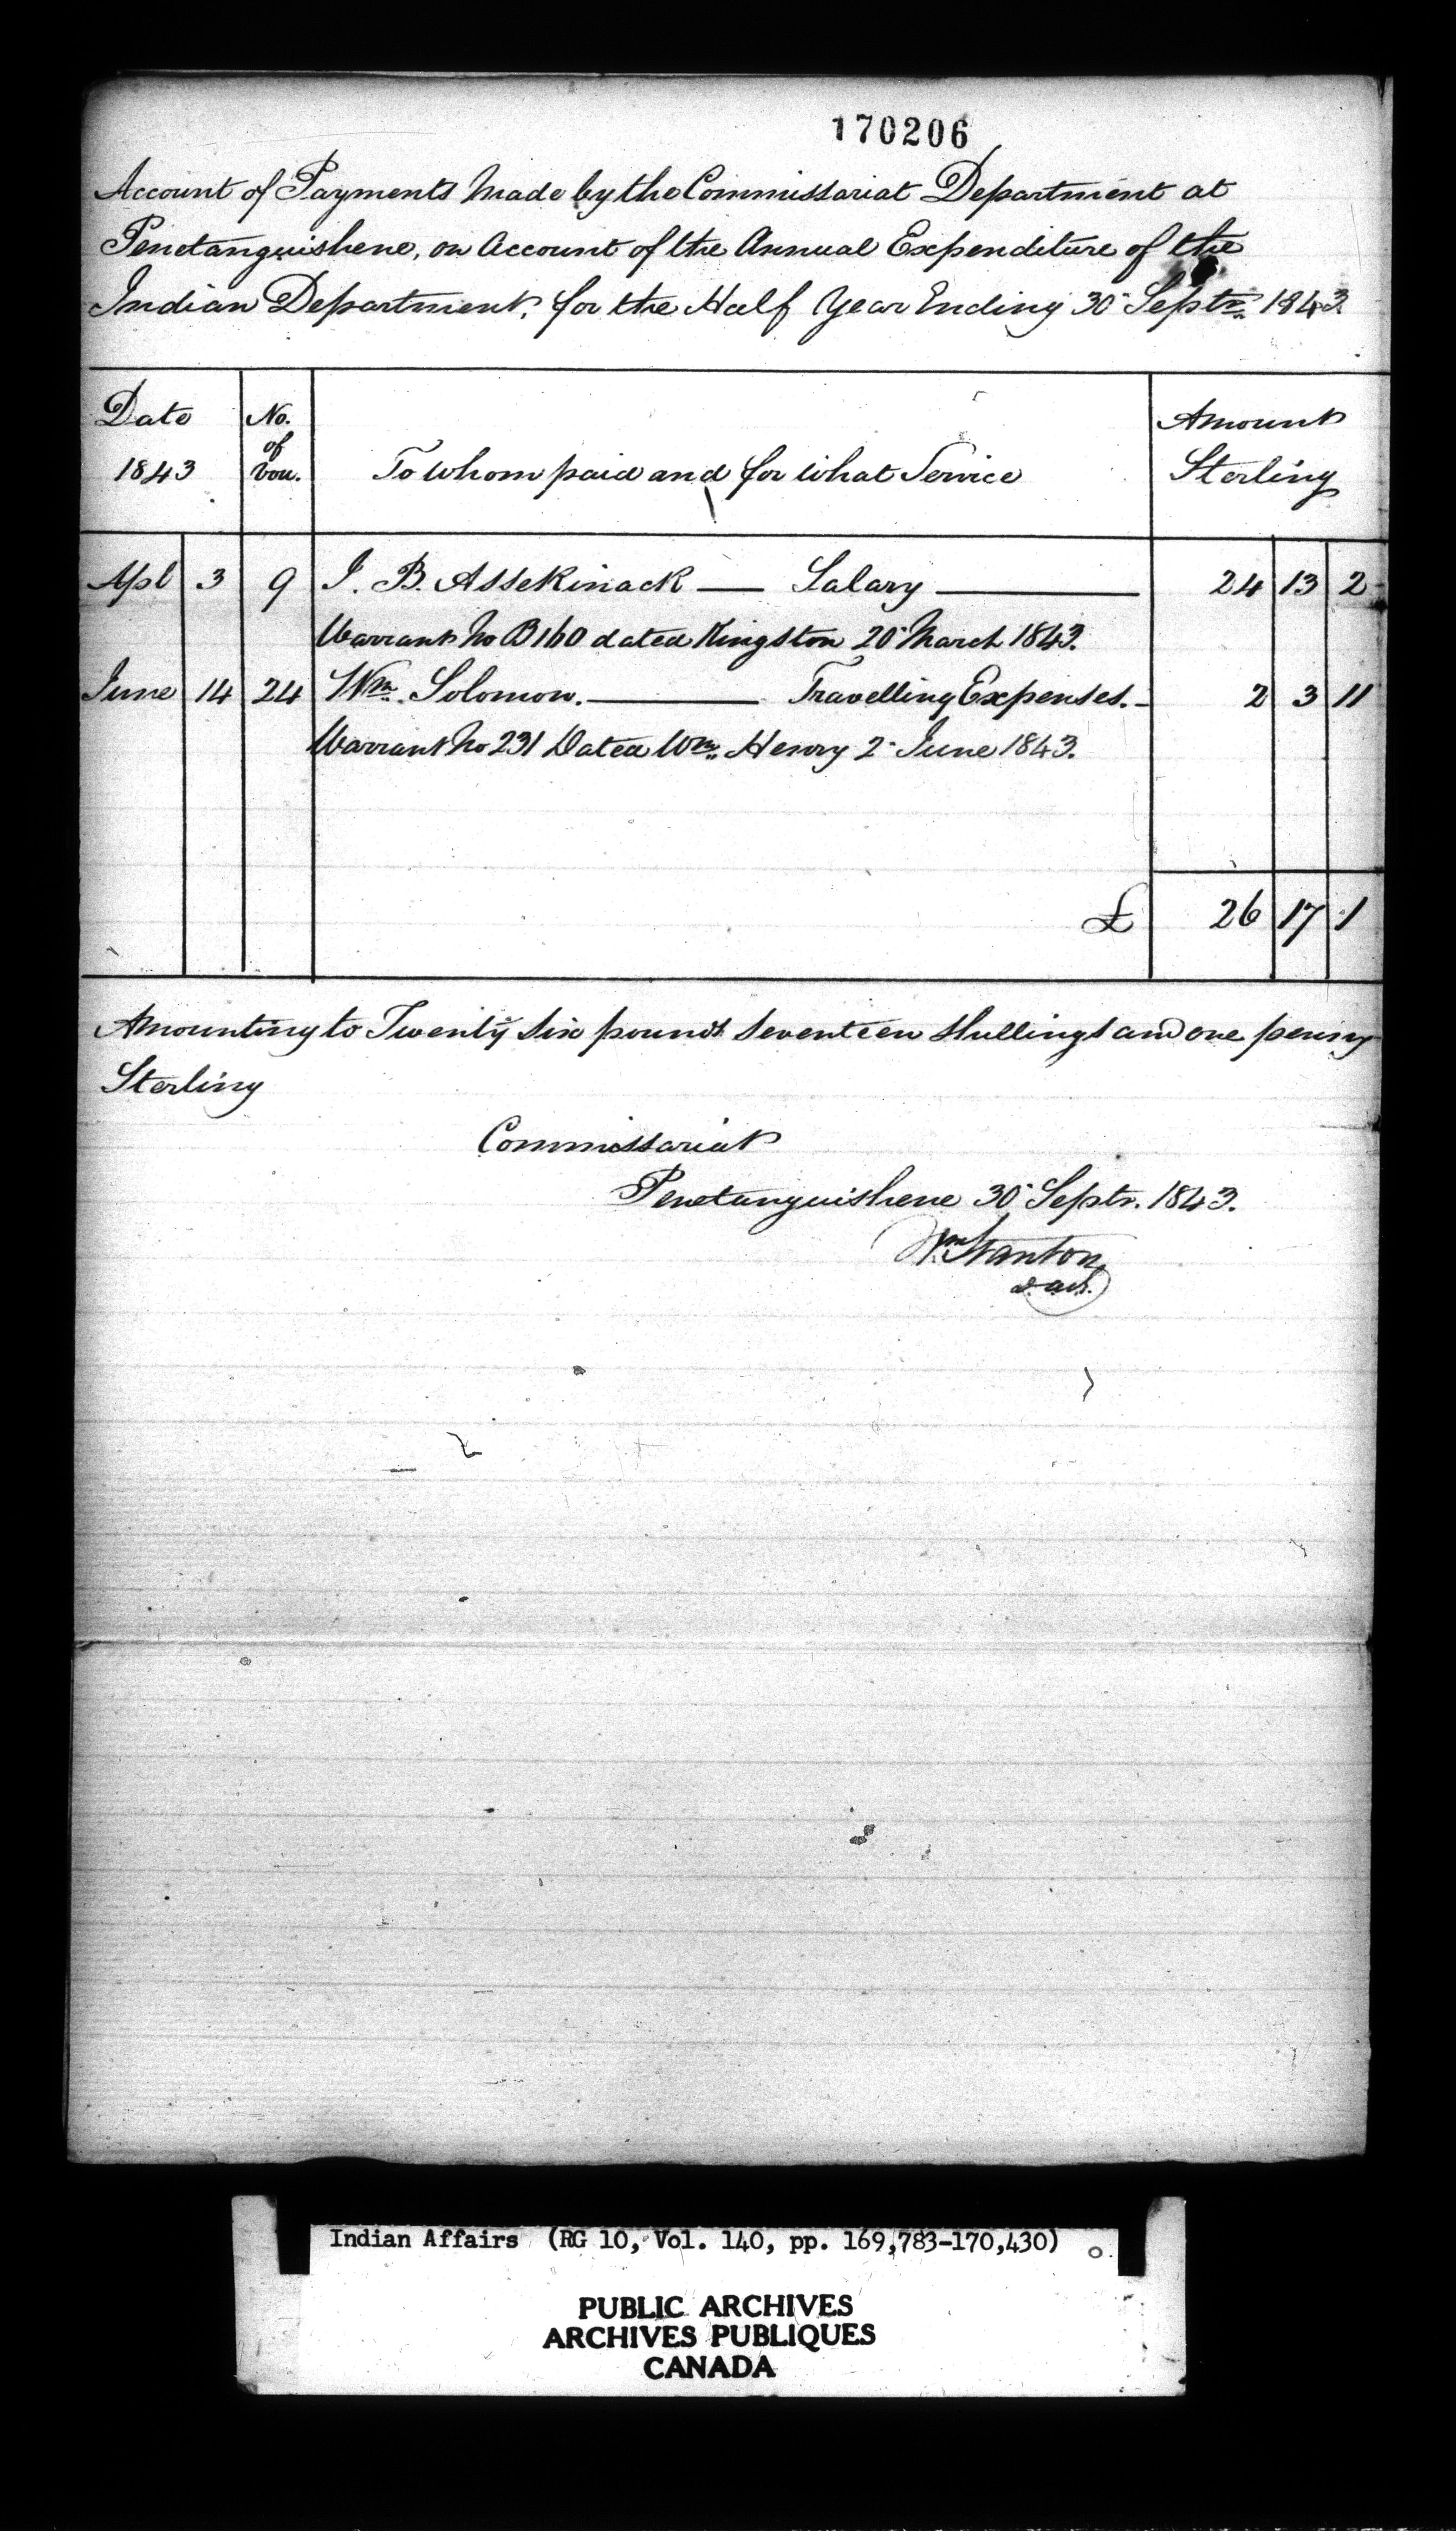 170206
Account of Payments Made by the Commissariat Department at
Penetanguishene, on Account of the Annual Expenditure of the
Indian Department, for the Half Year Ending 30 Septr. 1843
Date 1843 No. of Vou. To Whom paid and for What Service Amount Sterling
Apl 3 9 J. B. Assekinack — Salary — 24 13 2
Warrant No B160 dated Kingston 20 March 1843.
June 14 24 Wm. Solomon. — Travelling Expenses. - 2 3 11
Warrant No 231 Dated Wm. Henry 2 June 1843.
£ 26 17 1
Amounting to Twenty Six pounds Seventeen Shillings and one penny
Sterling
Commissariat
Penetanguishene 30 Septr. 1843.
Wm Stanton
Indian Affairs (RG 10, Vol. 140, pp. 169,783-170,430)
PUBLIC ARCHIVES
ARCHIVES PUBLIQUES
CANADA